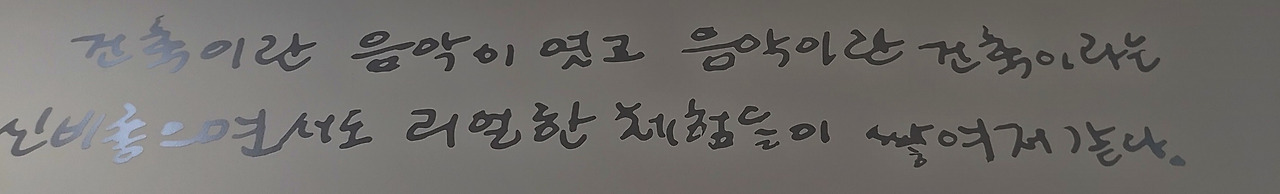 건축이란 음악이 였고 음악이란 건축이라는
신비로으면서도 리얼한 체험들이 쌓여저갔다.